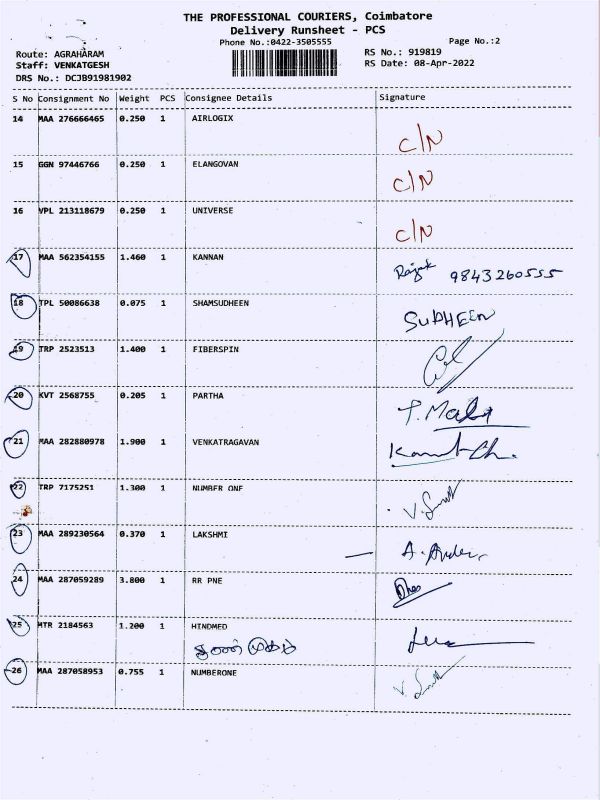 THE PROFESSIONAL COURIERS, Coimbatore
Delivery Runsheet - PCS
Phone No.:0422-3505555
Page No.:2
Route: AGRAHARAM
RS No.: 919819
Staff: VENKATGESH
RS Date: 08-Apr-2022
DRS No.: DCJB91981902
S No Consignment No Weight PCS Consignee Details Signature
14 MAA 276666465 0.250 1 AIRLOGIX
C/N
15 GGN 97446766 0.250 1 ELANGOVAN
C/N
16 VPL 213118679 0.250 1 UNIVERSE
C/N
17 MAA 562354155 1.460 1 KANNAN
9843260555
18 TPL 50086638 0.075 1 SHAMSUDHEEN
SUDHEEN
19 TRP 2523513 1.400 1 FIBERSPIN
20 KVT 2568755 0.205 1 PARTHA
21 MAA 282880978 1.900 1 VENKATRAGAVAN
22 TRP 7175251 1.300 1 NUMBER ONE
23 MAA 289230564 0.370 1 LAKSHMI
24 MAA 287059289 3.800 1 RR PNE
25 MTR 2184563 1.200 1 HINDMED
26 MAA 287058953 0.755 1 NUMBERONE